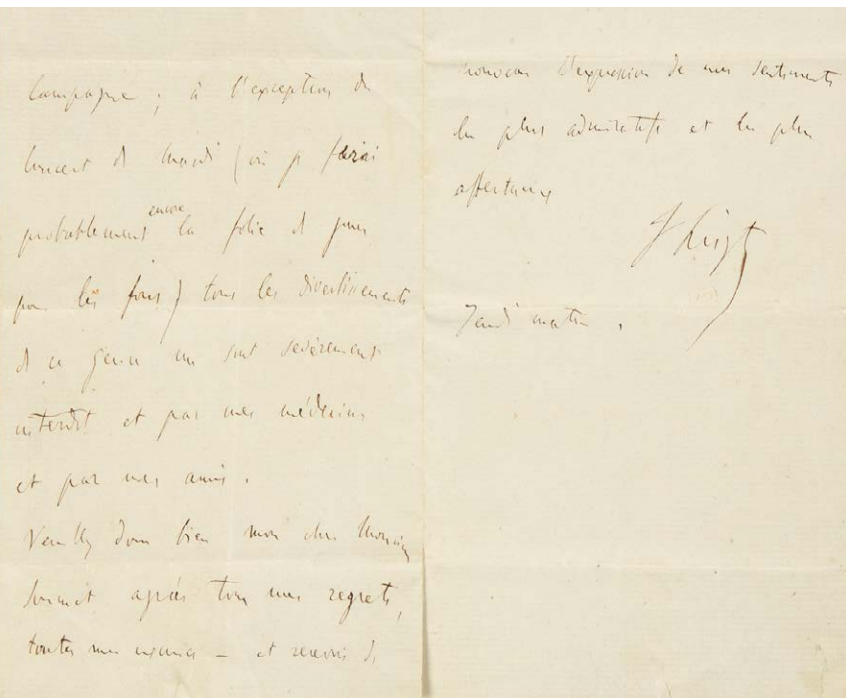 Campagne ; à l'exception du
Concert de Mardi (où je ferai
probablement encore la folie de jouer
pour les fous) tous les divertissements
de ce genre me sont sévèrement
interdit et par mes médecins
et par mes amis .
Veuillez donc bien mon cher Monsieur
agréer tous mes regrets,
toutes mes excuses – et recevoir de
nouveau l'expression de mes sentiments
les plus admiratifs et les plus
affectueux
F Liszt
Jeudi matin .